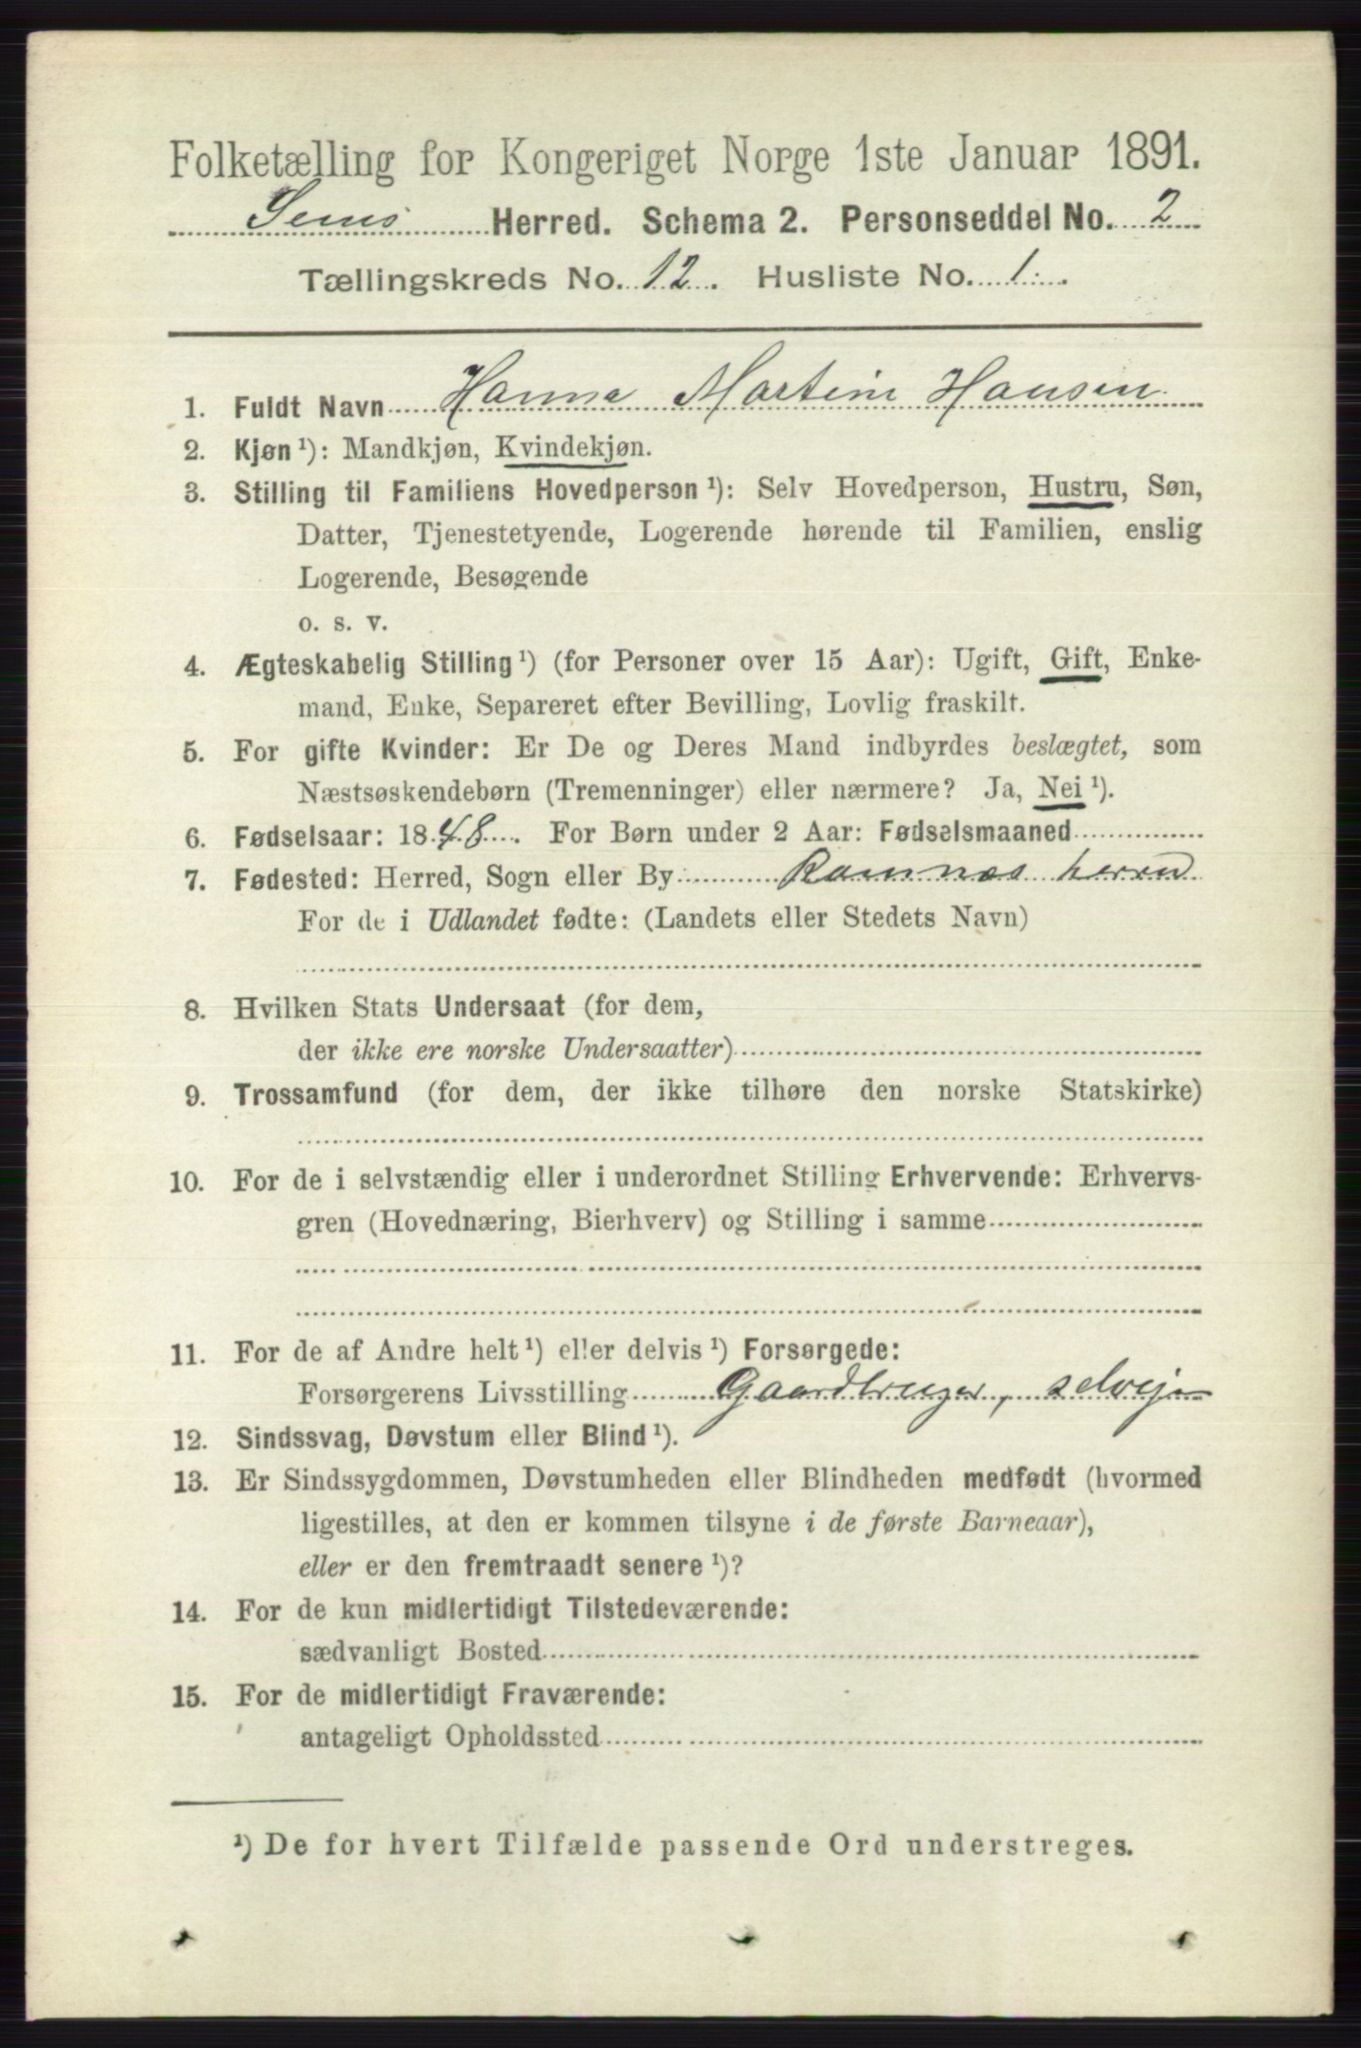 Folketælling for Kongeriget Norge 1ste Januar 1891.
Sems Herred. Schema 2. Personseddel No. 2
Tællingskreds No. 12. Husliste No. 1.
1. Fuldt Navn Hanna Martine Hansen
2. Kjøn ¹): Mandkjøn, Kvindekjøn.
3. Stilling til Familiens Hovedperson ¹): Selv Hovedperson, Hustru, Søn,
Datter, Tjenestetyende, Logerende hørende til Familien, enslig
Logerende, Besøgende
o. s. v.
4. Ægteskabelig Stilling ¹) (for Personer over 15 Aar): Ugift, Gift, Enke-
mand, Enke, Separeret efter Bevilling, Lovlig fraskilt.
5. For gifte Kvinder: Er De og Deres Mand indbyrdes beslægtet, som
Næstsøskendebørn (Tremenninger) eller nærmere? Ja, Nei ¹).
6. Fødselsaar: 1848. For Børn under 2 Aar: Fødselsmaaned
7. Fødested: Herred, Sogn eller By Ramnæs herred
For de i Udlandet fødte: (Landets eller Stedets Navn)
8. Hvilken Stats Undersaat (for dem,
der ikke ere norske Undersaatter)
9. Trossamfund (for dem, der ikke tilhøre den norske Statskirke)
10. For de i selvstændig eller i underordnet Stilling Erhvervende: Erhvervs-
gren (Hovednæring, Bierhverv) og Stilling i samme
11. For de af Andre helt ¹) eller delvis ¹) Forsørgede:
Forsørgerens Livsstilling Gaardbruger, selvejer
12. Sindssvag, Døvstum eller Blind ¹).
13. Er Sindssygdommen, Døvstumheden eller Blindheden medfødt (hvormed
ligestilles, at den er kommen tilsyne i de første Barneaar),
eller er den fremtraadt senere ¹)?
14. For de kun midlertidigt Tilstedeværende:
sædvanligt Bosted
15. For de midlertidigt Fraværende:
antageligt Opholdssted
¹) De for hvert Tilfælde passende Ord understreges.